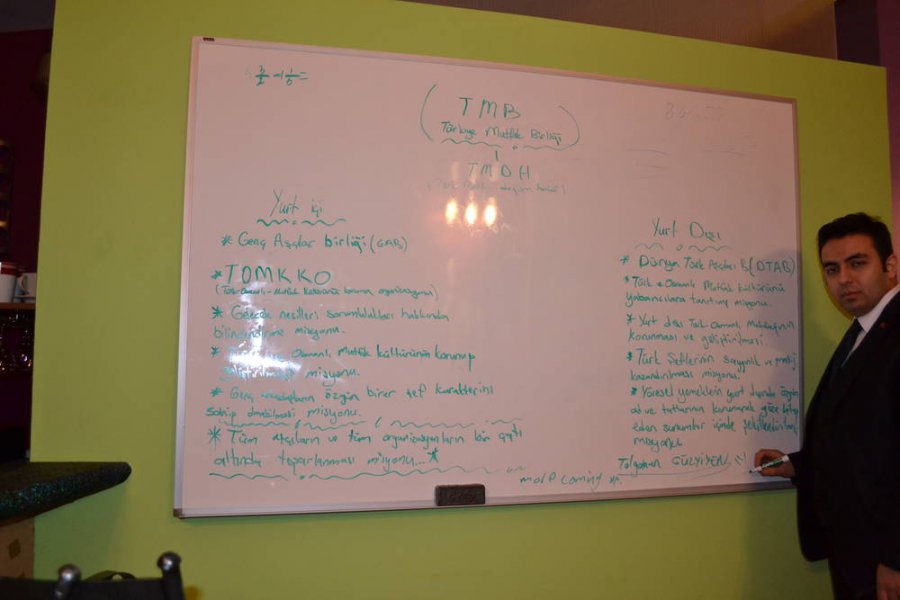 TMB
Türkiye Mutfak Birliği
TMDH
Yurt içi
* Genç Aşçılar birliği (GAB)
* TOMKKO
(Türk-Osmanlı-Mutfak Kültürünü koruma organizasyonu)
* Gelecek nesilleri sorumlulukları hakkında
bilinçlendirme misyonu.
* Osmanlı Mutfak kültürünün korunup
geliştirilmesi misyonu.
* Genç özgün birer şef karakterine
sahip olabilmesi misyonu.
* Tüm aşçıların ve tüm organizasyonların bir çatı
altında toparlanması misyonu...*
Yurt Dışı
* Dünya Türk Aşçıları B(DTAB)
* Türk ve Osmanlı Mutfak kültürünü
yabancılara tanıtma misyonu.
* Yurt dışı Türk-Osmanlı Mutfağının
korunması ve geliştirilmesi
* Türk Şeflerinin saygınlık ve prestij
kazandırılması misyonu.
* Yöresel yemeklerin yurt dışında özgün
ad ve tatlarının korunarak göze hitap
eden sunumlar içinde şekillendirilmesi
misyonu
Tolgahan GÜLYİYEN
more coming up.